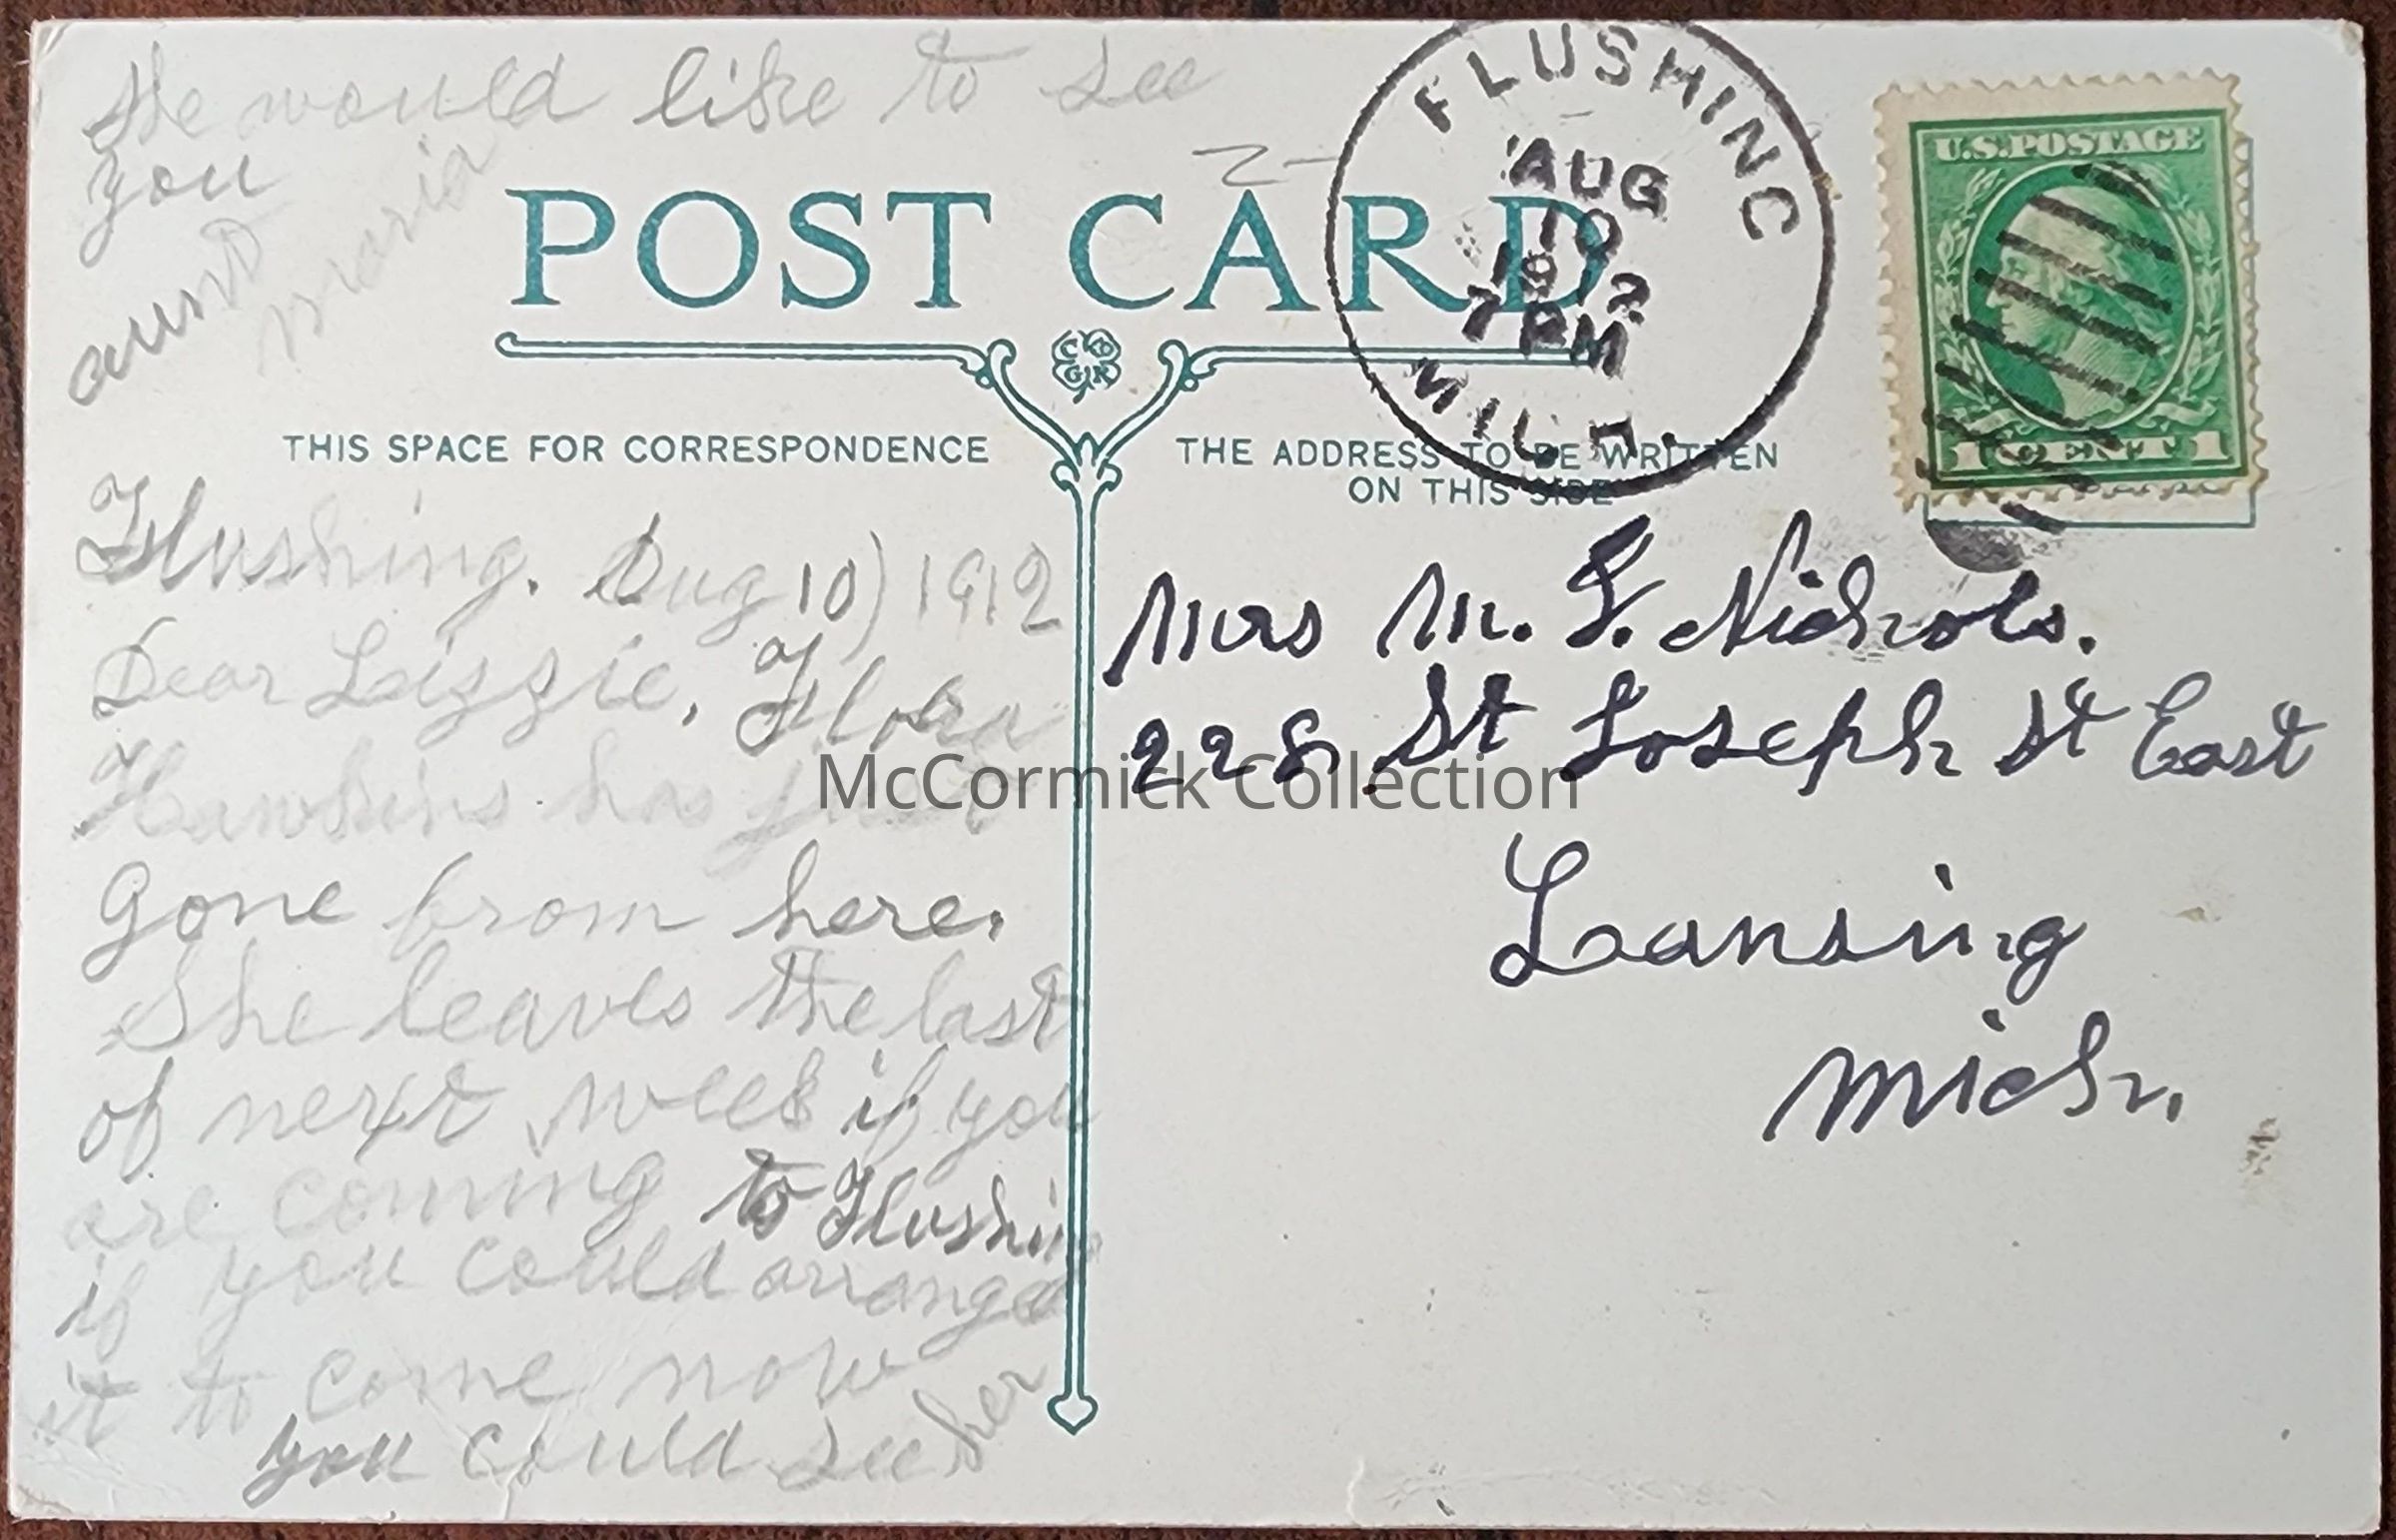 She would like to see
you
aunt
maria
POST CARD
FLUSHING
AUG
10
1912
7 PM
MICH.
U.S. POSTAGE
1 CENT 1
THIS SPACE FOR CORRESPONDENCE
THE ADDRESS TO BE WRITTEN
ON THIS SIDE
Flushing. Aug 10) 1912
Dear Lizzie, Flora
Hawkins has just
gone from here.
She leaves the last
of next week if you
are coming to Flushing
if you could arrange
it to come now
you could see her
Mrs M. F. Nichols.
228 St Joseph St East
Lansing
Mich.
McCormick Collection